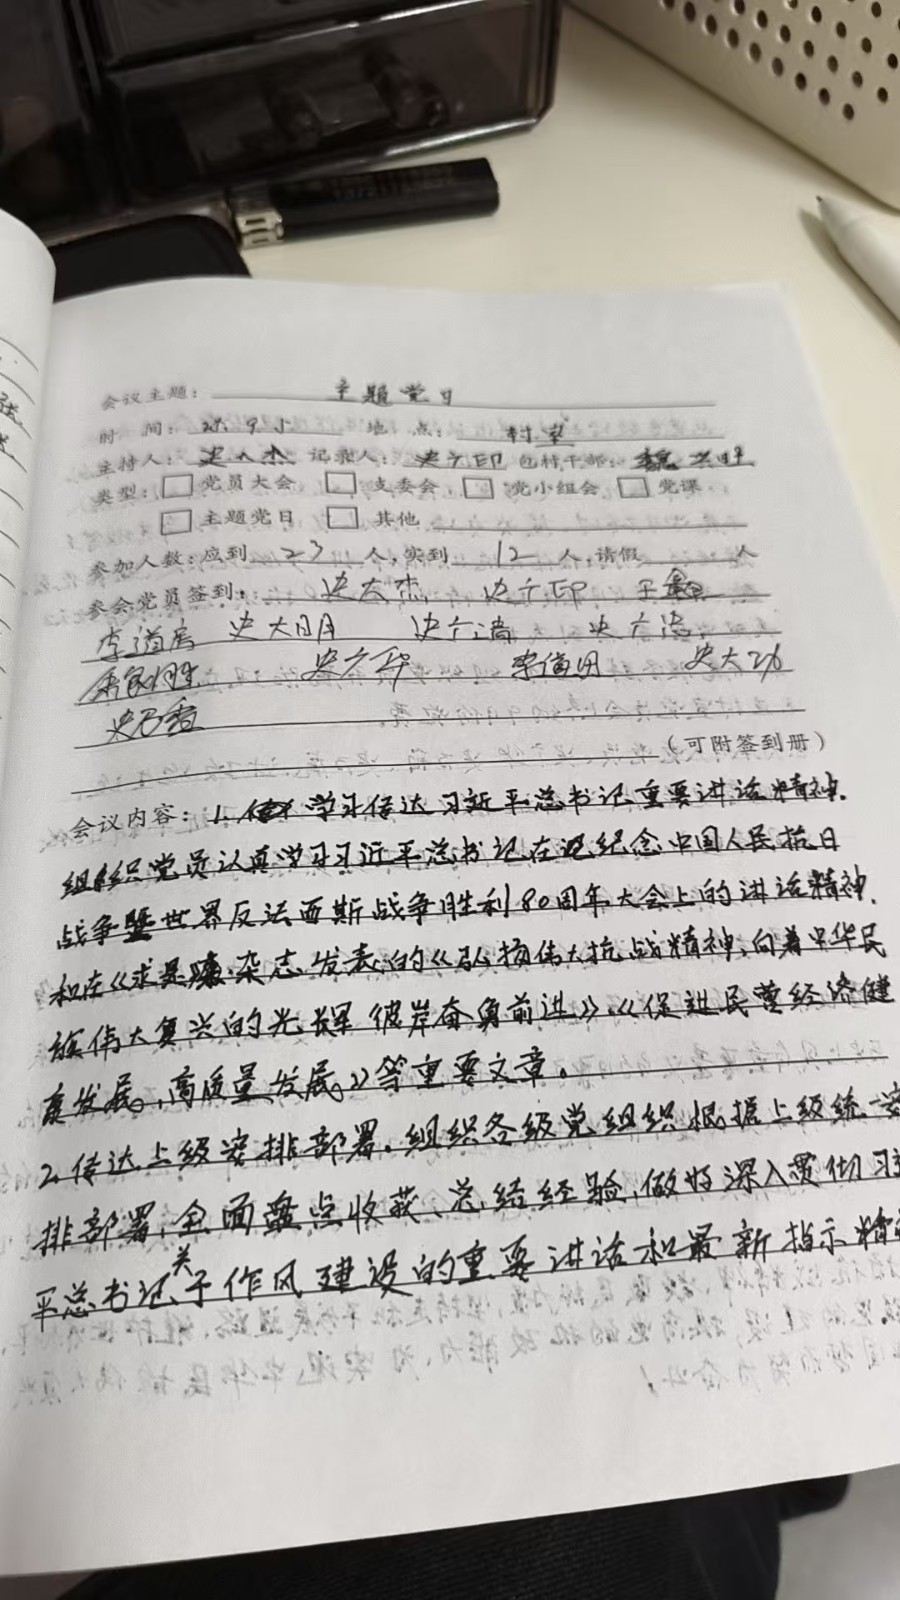 会议主题： 主题党日
时 间： 地 点： 村室
主持人：史大杰 记录人：史广印 包村干部：
类型：□党员大会 □支委会 □党小组会 □党课
□主题党日 □其他
参加人数：应到 23 人，实到 12 人，请假 人
参会党员签到： 史大杰 史广印 王
李道房 史大明 史广清 史广浩
史广印 李信田 史大功
史乃香
（可附签到册）
会议内容：1. 学习传达习近平总书记重要讲话精神.
组织党员认真学习习近平总书记在纪念中国人民抗日
战争暨世界反法西斯战争胜利80周年大会上的讲话精神.
和在《求是》杂志发表的《弘扬伟大抗战精神,向着中华民
族伟大复兴的光辉彼岸奋勇前进》.《促进民营经济健
康发展,高质量发展》等重要文章。
2.传达上级安排部署。组织各级党组织根据上级统一安
排部署,全面盘点收获、总结经验,做好深入贯彻习近
平总书记关于作风建设的重要讲话和最新指示精